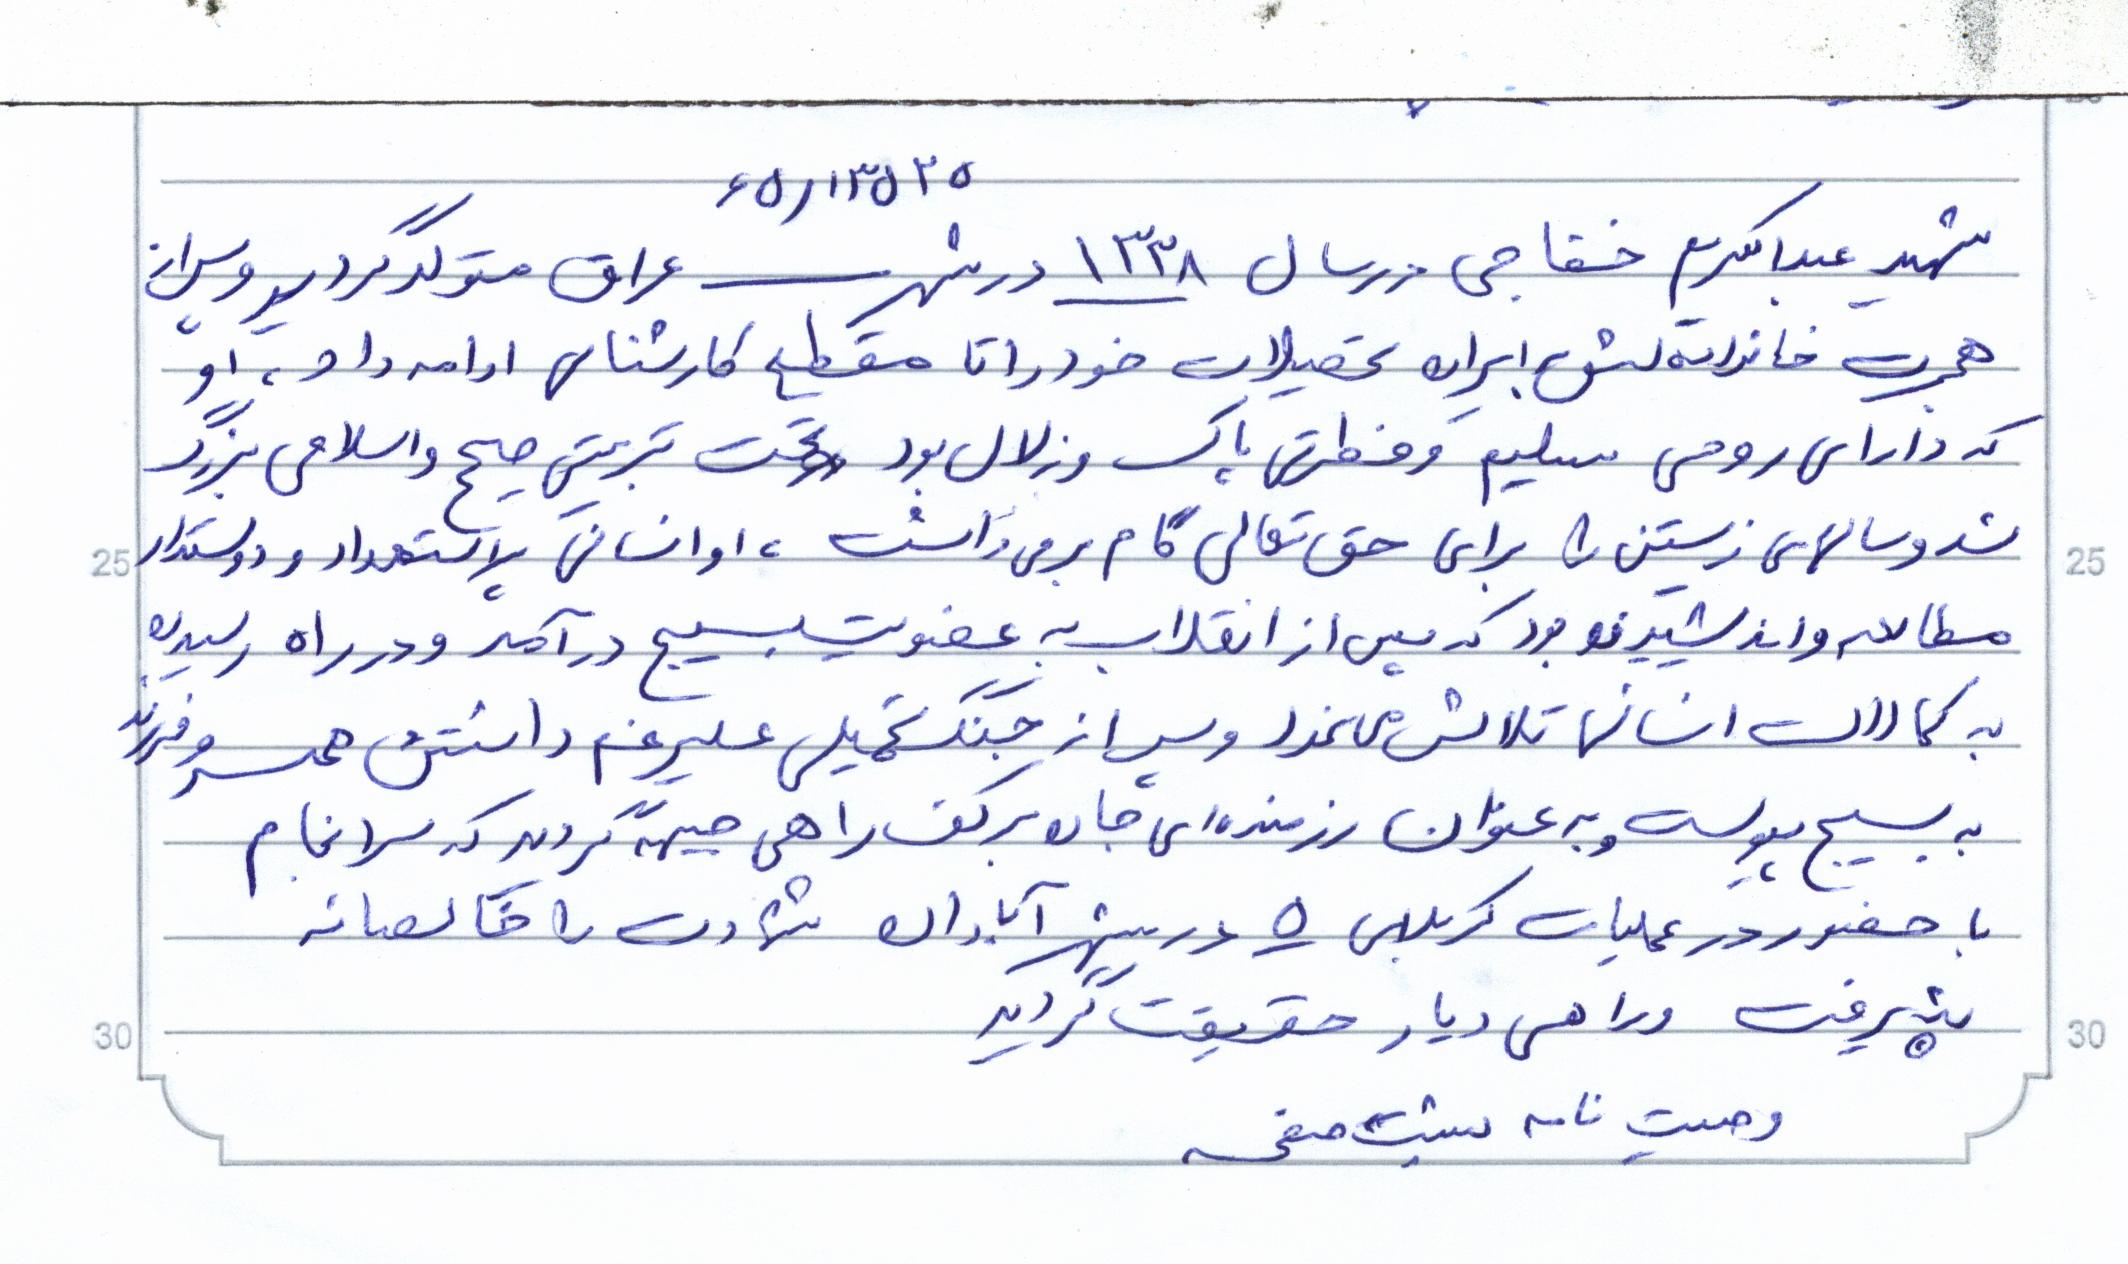 ۶۵٫۱۳۵۲۵
شهید عبدالکریم خفاجی در سال ۱۳۳۸ در شهر عراق متولد گردید و پس از
هجرت خانواده‌اش به ایران تحصیلات خود را تا مقطع کارشناسی ادامه داد، او
که دارای روحی سلیم و فطرتی پاک و زلال بود تحت تربیتی صحیح و اسلامی بزرگ
شد و سالهای زیستن را برای حق تعالی گام برمی‌داشت، او انسانی با استعداد و دوستدار
مطالعه و اندیشیدن بود که پس از انقلاب به عضویت بسیج درآمد و در راه رسیدن
به کمالات انسانی تلاش می‌نمود و پس از جنگ تحمیلی علیرغم داشتن همسر و فرزند
به بسیج پیوست و به عنوان رزمنده‌ای جان بر کف راهی جبهه گردید که سرانجام
با حضور در عملیات کربلای ۵ در شهر آبادان شهادت را خالصانه
پذیرفت و راهی دیار حقیقت گردید
وصیت نامه پشت صفحه
25
25
30
30